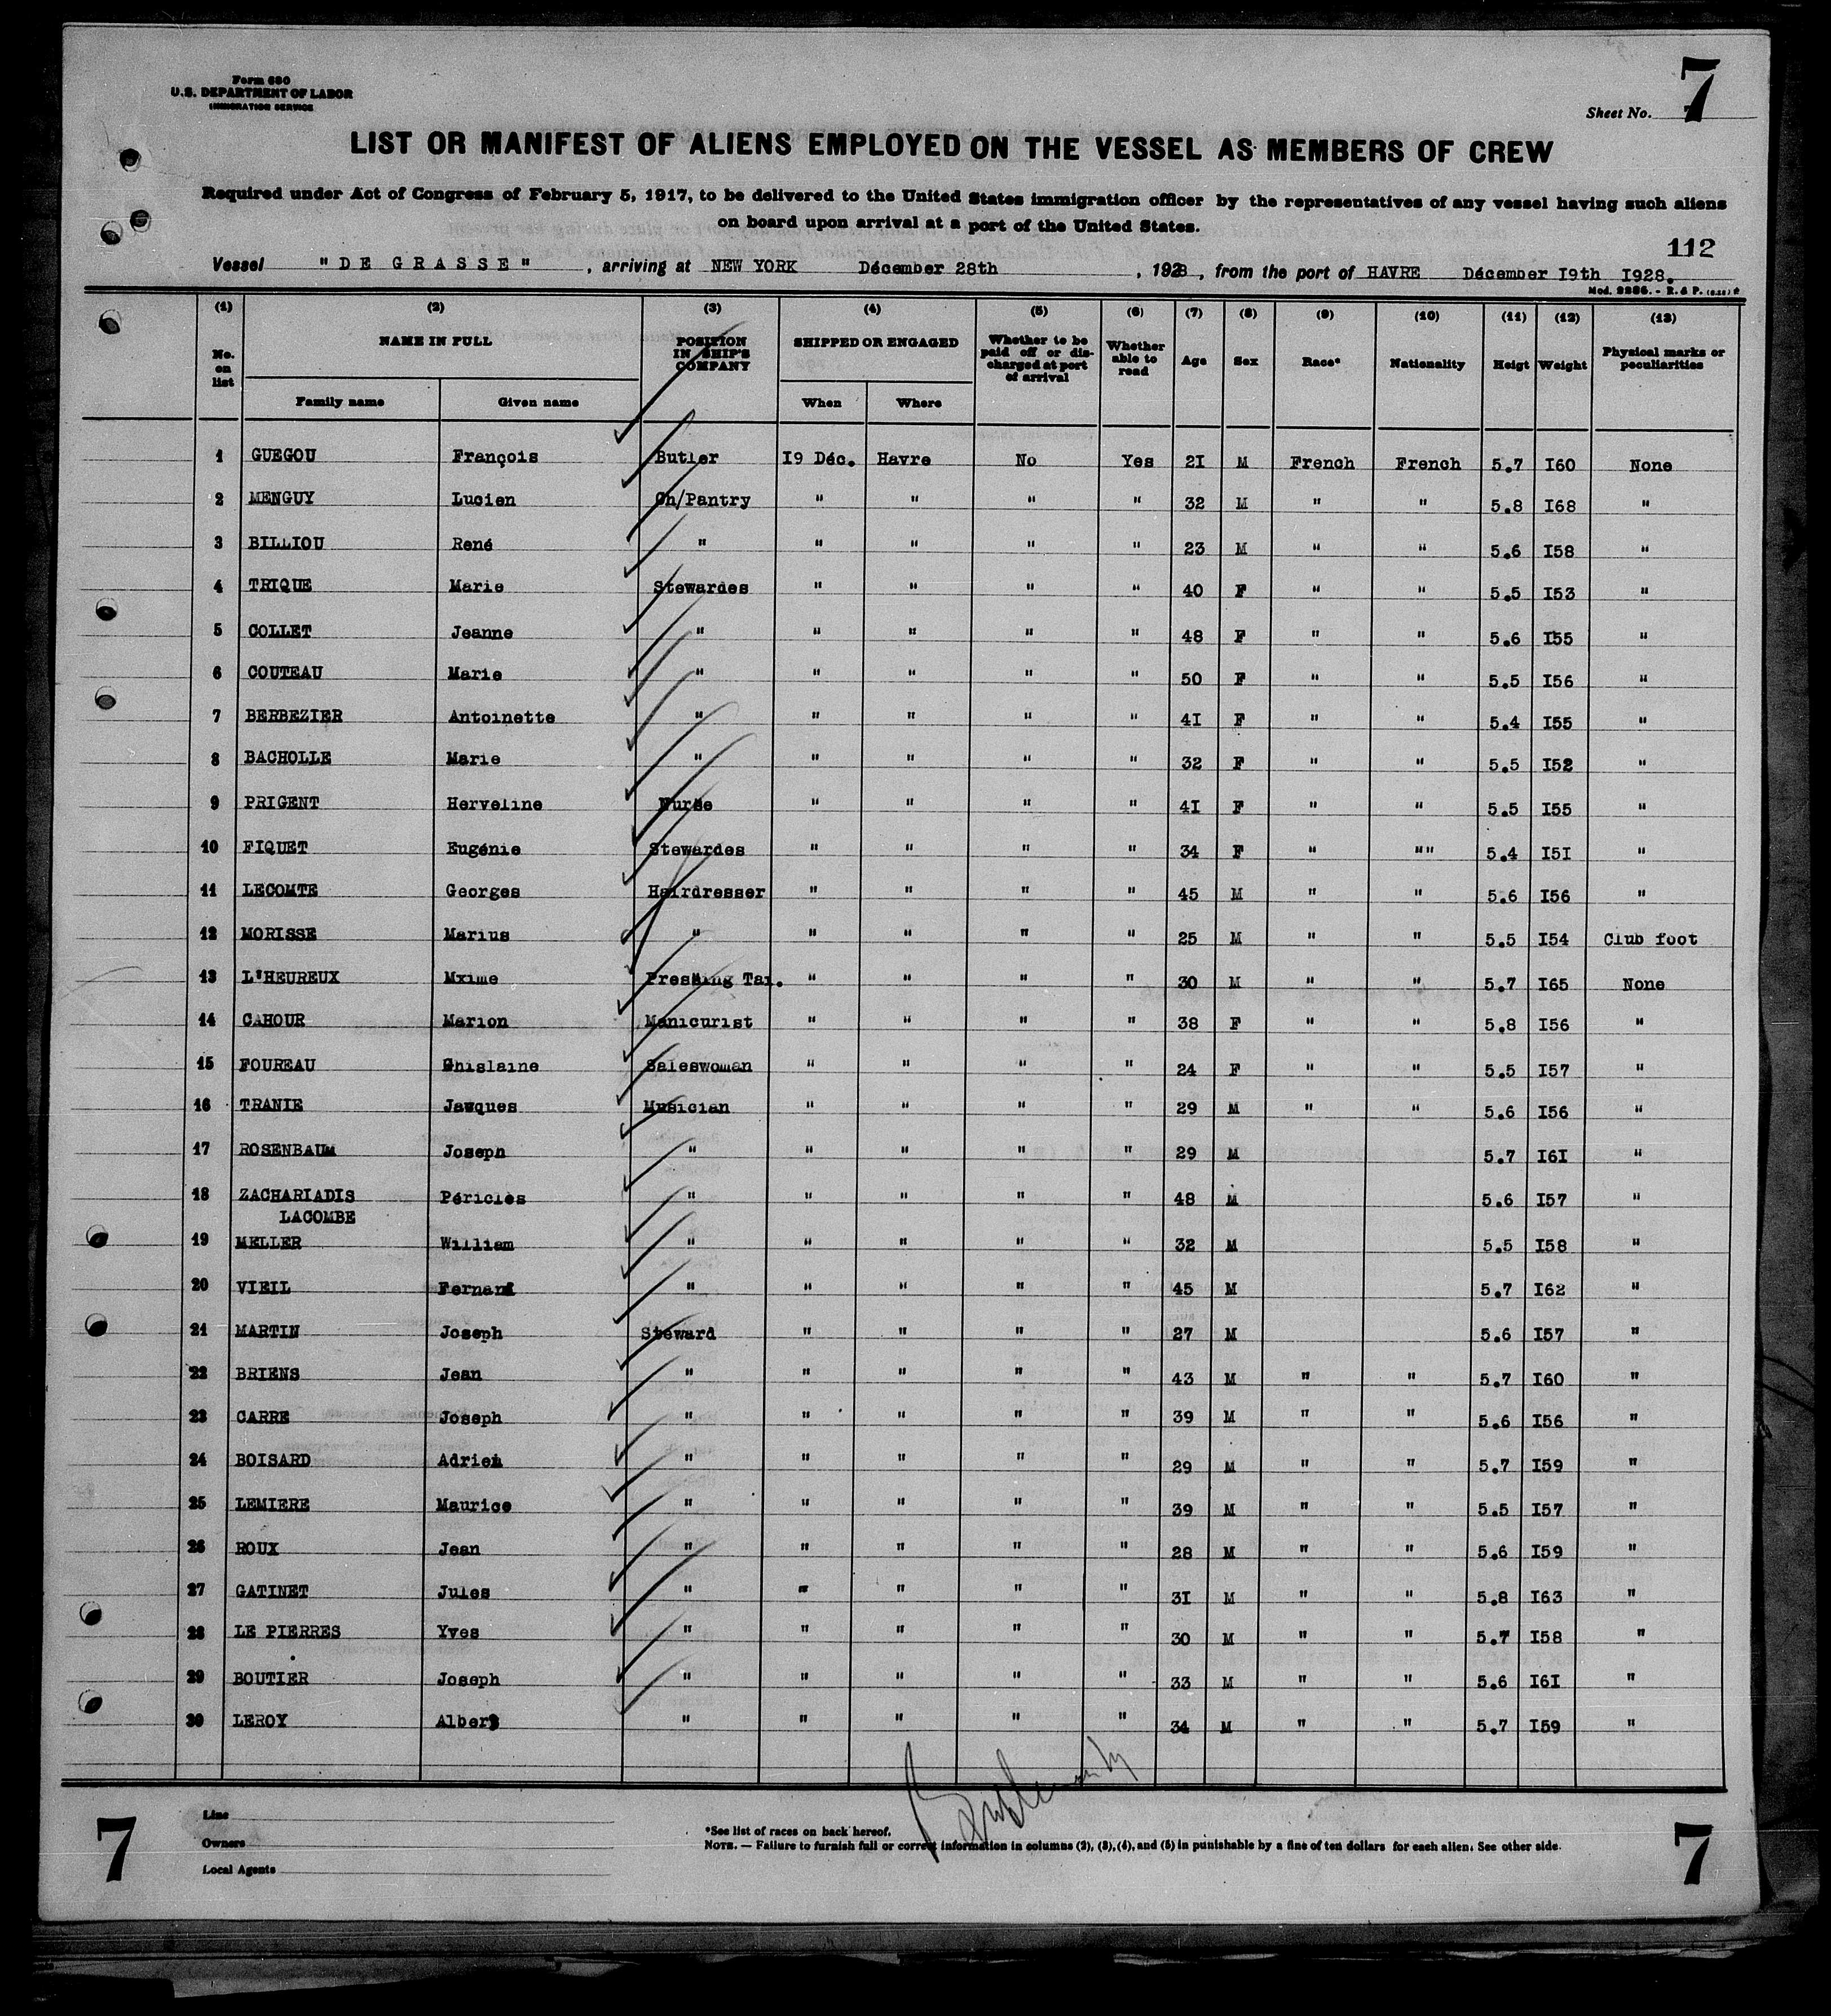 Form 680
U.S. DEPARTMENT OF LABOR
IMMIGRATION SERVICE
7
Sheet No. 7
LIST OR MANIFEST OF ALIENS EMPLOYED ON THE VESSEL AS MEMBERS OF CREW
Required under Act of Congress of February 5, 1917, to be delivered to the United States immigration officer by the representatives of any vessel having such aliens
on board upon arrival at a port of the United States.
112
Vessel "DE GRASSE", arriving at NEW YORK Décember 28th, 1928, from the port of HAVRE Décember I9th I928.
Mod. 2286. - R. & P.
(1) (2) (3) (4) (5) (6) (7) (8) (9) (10) (11) (12) (13)
No. on list NAME IN FULL POSITION IN SHIP'S COMPANY SHIPPED OR ENGAGED Whether to be paid off or discharged at port of arrival Whether able to read Age Sex Race* Nationality Heigt Weight Physical marks or peculiarities
Family name Given name When Where
1 GUEGOU François Butler I9 Déc. Havre No Yes 2I M French French 5.7 I60 None
2 MENGUY Lucien Ch/Pantry " " " " 32 M " " 5.8 I68 "
3 BILLIOU René " " " " " 23 M " " 5.6 I58 "
4 TRIQUE Marie Stewardes " " " " 40 F " " 5.5 I53 "
5 COLLET Jeanne " " " " " 48 F " " 5.6 I55 "
6 COUTEAU Marie " " " " " 50 F " " 5.5 I56 "
7 BERBEZIER Antoinette " " " " " 4I F " " 5.4 I55 "
8 BACHOLLE Marie " " " " " 32 F " " 5.5 I52 "
9 PRIGENT Herveline Nurse " " " " 4I F " " 5.5 I55 "
10 FIQUET Eugénie Stewardes " " " " 34 F " "" 5.4 I5I "
11 LECOMTE Georges Hairdresser " " " " 45 M " " 5.6 I56 "
12 MORISSE Marius " " " " " 25 M " " 5.5 I54 Club foot
13 L'HEUREUX Mxime Pressing Tai. " " " " 30 M " " 5.7 I65 None
14 CAHOUR Marion Manicurist " " " " 38 F " " 5.8 I56 "
15 FOUREAU Ghislaine Saleswoman " " " " 24 F " " 5.5 I57 "
16 TRANIE Jawques Musician " " " " 29 M " " 5.6 I56 "
17 ROSENBAUM Joseph " " " " " 29 M 5.7 I6I "
18 ZACHARIADIS Périclès " " " " " 48 M 5.6 I57 "
LACOMBE
19 MELLER William " " " " " 32 M 5.5 I58 "
20 VIEIL Fernand " " " " " 45 M 5.7 I62 "
21 MARTIN Joseph Steward " " " " 27 M 5.6 I57 "
22 BRIENS Jean " " " " " 43 M " " 5.7 I60 "
23 CARRE Joseph " " " " " 39 M " " 5.6 I56 "
24 BOISARD Adrien " " " " " 29 M " " 5.7 I59 "
25 LEMIERE Maurice " " " " " 39 M " " 5.5 I57 "
26 ROUX Jean " " " " " 28 M " " 5.6 I59 "
27 GATINET Jules " " " " " 3I M " " 5.8 I63 "
28 LE PIERRES Yves " " " " " 30 M " " 5.7 I58 "
29 BOUTIER Joseph " " " " " 33 M " " 5.6 I6I "
30 LEROY Albert " " " " " 34 M " " 5.7 I59 "
7
Line
Owners
Local Agents
*See list of races on back hereof.
NOTE. — Failure to furnish full or correct information in columns (2), (3), (4), and (5) in punishable by a fine of ten dollars for each alien. See other side.
7